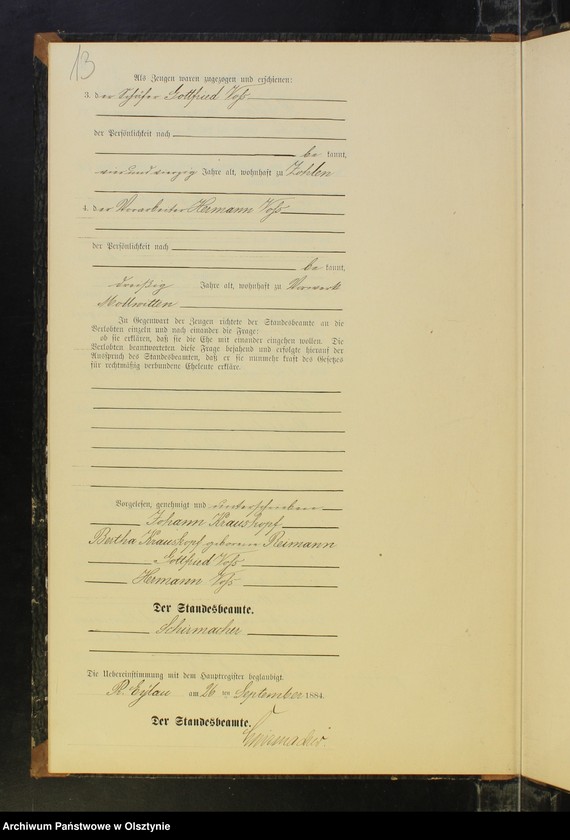 13
Als Zeugen waren zugezogen und erschienen:
3. der Schäfer Gottfried Voß
der Persönlichkeit nach
be kannt,
vierundvierzig Jahre alt, wohnhaft zu Zohlen
4. der Vorarbeiter Hermann Voß
der Persönlichkeit nach
be kannt,
dreißig Jahre alt, wohnhaft zu Vorwerk
Mollwitten
In Gegenwart der Zeugen richtete der Standesbeamte an die
Verlobten einzeln und nach einander die Frage:
ob sie erklären, daß sie die Ehe mit einander eingehen wollen. Die
Verlobten beantworteten diese Frage bejahend und erfolgte hierauf der
Ausspruch des Standesbeamten, daß er sie nunmehr kraft des Gesetzes
für rechtmäßig verbundene Eheleute erkläre.
Vorgelesen, genehmigt und unterschrieben
Johann Krauskopf
Bertha Krauskopf geborene Reimann
Gottfried Voß
Hermann Voß
Der Standesbeamte.
Schirmacher
Die Uebereinstimmung mit dem Hauptregister beglaubigt.
Pr. Eylau am 26 ten September 1884.
Der Standesbeamte.
Schirmacher
Archiwum Państwowe w Olsztynie